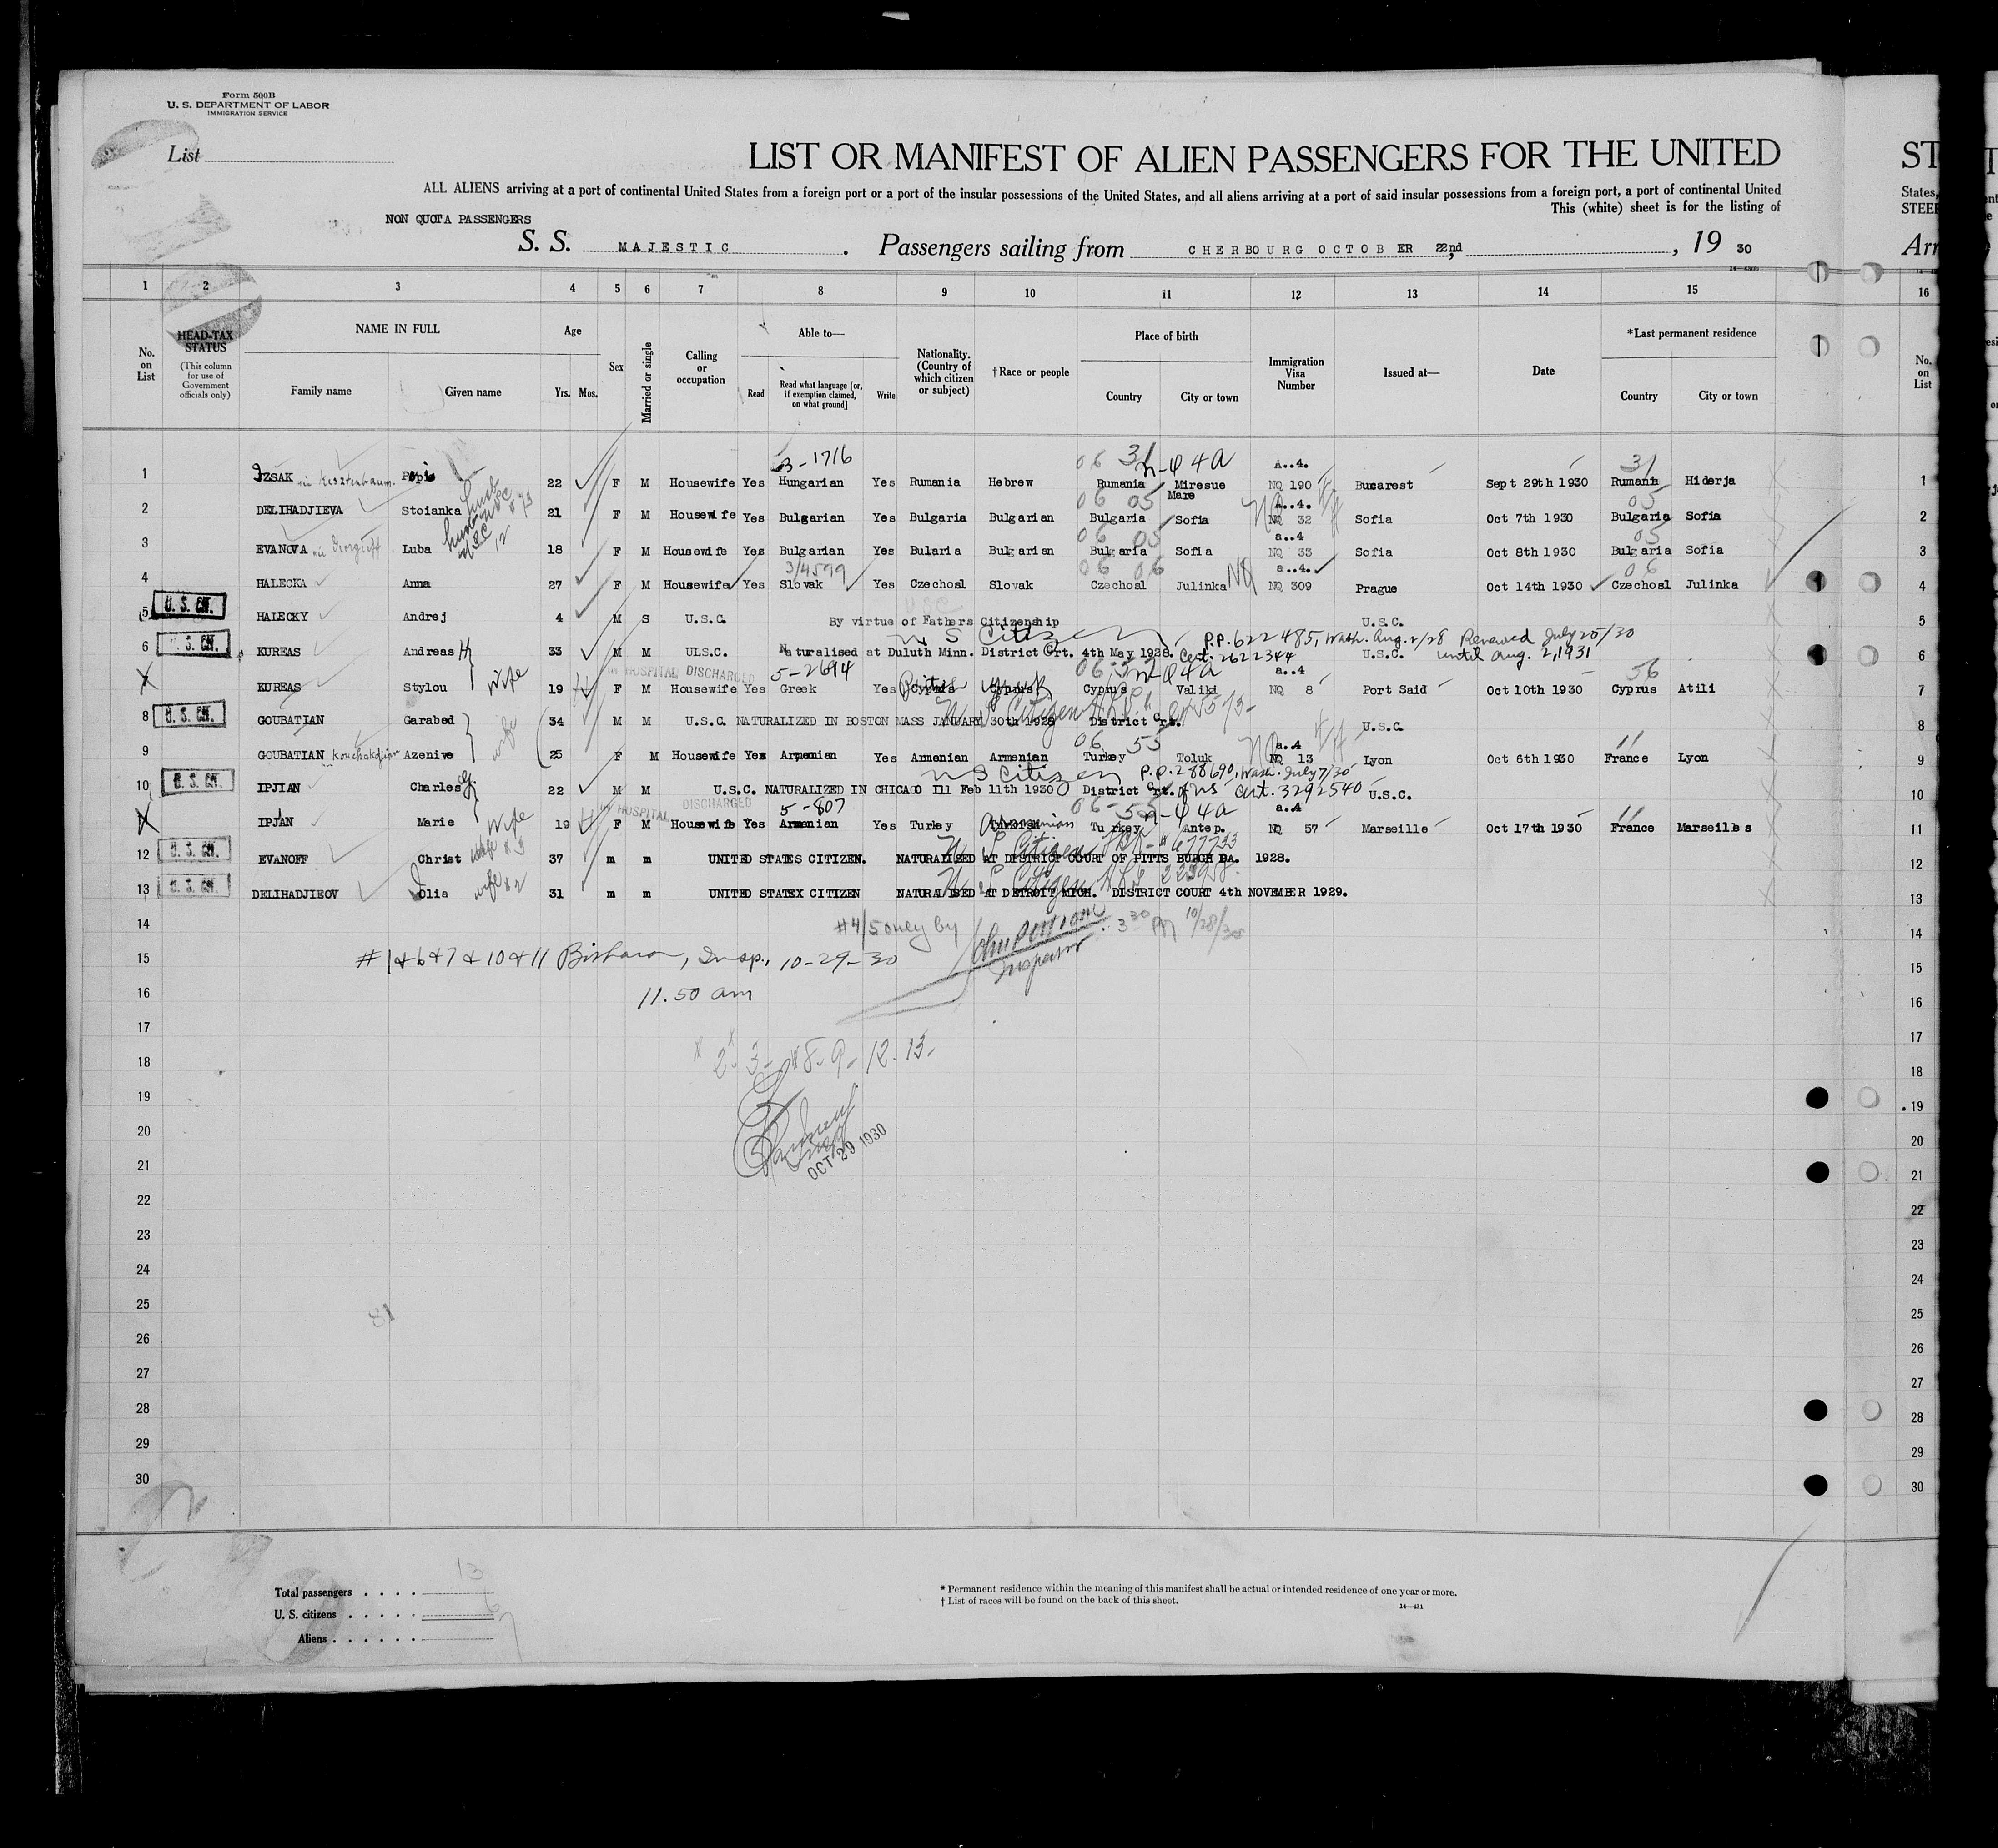 Form 500B
U. S. DEPARTMENT OF LABOR
IMMIGRATION SERVICE
List
LIST OR MANIFEST OF ALIEN PASSENGERS FOR THE UNITED
ST
ALL ALIENS arriving at a port of continental United States from a foreign port or a port of the insular possessions of the United States, and all aliens arriving at a port of said insular possessions from a foreign port, a port of continental United
States,
This (white) sheet is for the listing of
STEE
NON QUOTA PASSENGERS
S. S. MAJESTIC. Passengers sailing from CHERBOURG OCTOBER 22nd, 19 30
Arr
14—430b
1 2 3 4 5 6 7 8 9 10 11 12 13 14 15 16
No. on List
HEAD-TAX STATUS
(This column for use of Government officials only)
NAME IN FULL
Family name Given name
Age
Yrs. Mos.
Sex
Married or single
Calling or occupation
Able to—
Read Read what language [or, if exemption claimed, on what ground] Write
Nationality. (Country of which citizen or subject)
†Race or people
Place of birth
Country City or town
Immigration Visa Number
Issued at—
Date
*Last permanent residence
Country City or town
No. on List
3-1716 06 31 A..4. 31
1 IZSAK Pepi 22 F M Housewife Yes Hungarian Yes Rumania Hebrew Rumania Miresue Mare NQ 190 Bucarest Sept 29th 1930 Rumania Hiderja 1
06 05 A..4. 05
2 DELIHADJIEVA Stoianka 21 F M Housewife Yes Bulgarian Yes Bulgaria Bulgarian Bulgaria Sofia NQ 32 Sofia Oct 7th 1930 Bulgaria Sofia 2
06 05 a..4 05
3 EVANOVA Luba 18 F M Housewife Yes Bulgarian Yes Bularia Bulgarian Bulgaria Sofia NQ 33 Sofia Oct 8th 1930 Bulgaria Sofia 3
3/4599 06 06 a..4. 06
4 HALECKA Anna 27 F M Housewife Yes Slovak Yes Czechosl Slovak Czechosl Julinka NQ 309 Prague Oct 14th 1930 Czechosl Julinka 4
5 U. S. CIT. HALECKY Andrej 4 M S U.S.C. By virtue of Fathers Citizenship U.S.C. 5
U S Citizen P.P. 622485, Wash. Aug. 2/28 Renewed July 25/30
6 U. S. CIT. KUREAS Andreas H 33 M M ULS.C. Naturalised at Duluth Minn. District Crt. 4th May 1928. Cert. 2622344 U.S.C. until Aug. 2, 1931 6
IN HOSPITAL DISCHARGED 5-2694 a..4 56
KUREAS Stylou wife 19 F M Housewife Yes Greek Yes Cyprus Cyprus Cyprus Valiki NQ 8 Port Said Oct 10th 1930 Cyprus Atili 7
8 U. S. CIT. GOUBATIAN Garabed 34 M M U.S.C. NATURALIZED IN BOSTON MASS JANUARY 30th 1928 District Crt. U.S.C. 8
06 55 a..4 11
9 GOUBATIAN Kouchakdjian Azenive wife 25 F M Housewife Yes Armenian Yes Armenian Armenian Turkey Toluk NQ 13 Lyon Oct 6th 1930 France Lyon 9
U S Citizen P.P. 288690, Wash. July 7/30
10 U. S. CIT. IPJIAN Charles 22 M M U.S.C. NATURALIZED IN CHICAGO Ill Feb 11th 1930 District Crt. of US Cert. 3292540 U.S.C. 10
IN HOSPITAL DISCHARGED 5-807 06-55 a..4 11
IPJAN Marie wife 19 F M Housewife Yes Armenian Yes Turkey Armenian Turkey Antep. NQ 57 Marseille Oct 17th 1930 France Marseilles 11
12 U. S. CIT. EVANOFF Christ wife #3 37 m m UNITED STATES CITIZEN. NATURALISED AT DISTRICT COURT OF PITTS BURGH PA. 1928. 12
13 U. S. CIT. DELIHADJIEOV Olia wife #2 31 m m UNITED STATEX CITIZEN NATURALISED AT DETROIT MICH. DISTRICT COURT 4th NOVEMBER 1929. 13
14 #4/5 only by 3 30 PM 10/28/30 14
Inspector
15 #1&6&7&10&11 Insp., 10-29-30 15
16 11.50 am 16
17 17
18 2. 3- 8- 9- 12. 13- 18
19 19
20 20
OCT 29 1930
21 21
22 22
23 23
24 24
25 25
81
26 26
27 27
28 28
29 29
30 30
Total passengers . . . . 13
U. S. citizens . . . . . 6
Aliens . . . . . . 7
* Permanent residence within the meaning of this manifest shall be actual or intended residence of one year or more.
† List of races will be found on the back of this sheet.
14—431